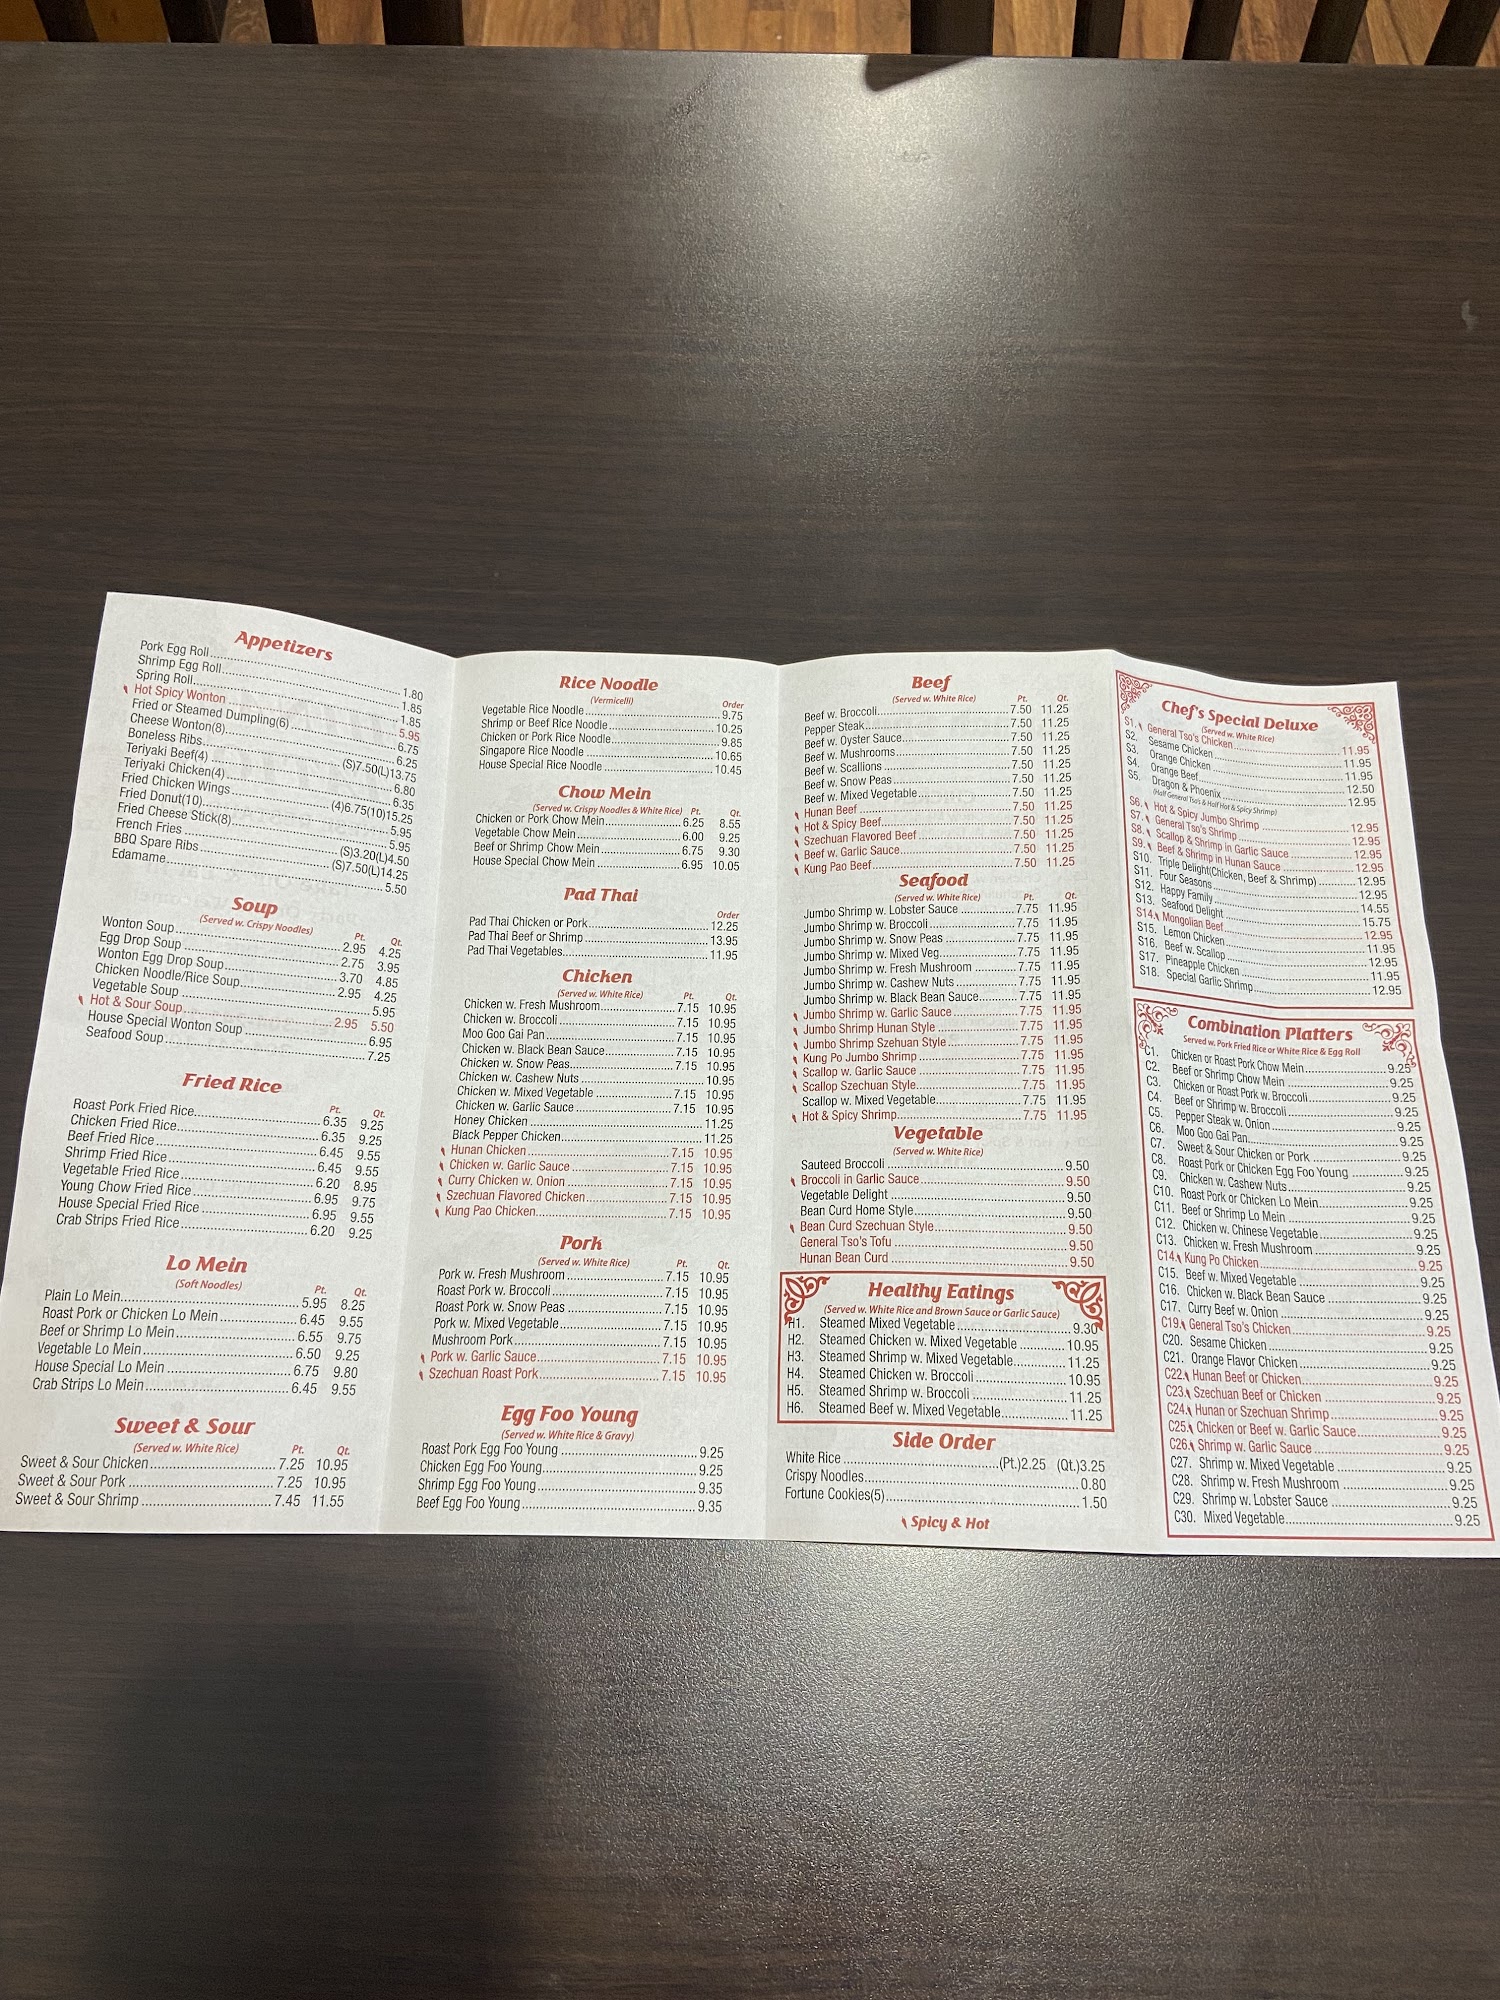 Appetizers
Pork Egg Roll 1.80
Shrimp Egg Roll 1.85
Spring Roll 1.85
Hot Spicy Wonton 5.95
Fried or Steamed Dumpling(6) 6.75
Cheese Wonton(8) 6.25
Boneless Ribs (S)7.50(L)13.75
Teriyaki Beef(4) 6.80
Teriyaki Chicken(4) 6.35
Fried Chicken Wings (4)6.75(10)15.25
Fried Donut(10) 5.95
Fried Cheese Stick(8) 5.95
French Fries (S)3.20(L)4.50
BBQ Spare Ribs (S)7.50(L)14.25
Edamame 5.50
Soup
(Served w. Crispy Noodles) Pt. Qt.
Wonton Soup 2.95 4.25
Egg Drop Soup 2.75 3.95
Wonton Egg Drop Soup 3.70 4.85
Chicken Noodle/Rice Soup 2.95 4.25
Vegetable Soup 5.95
Hot & Sour Soup 2.95 5.50
House Special Wonton Soup 6.95
Seafood Soup 7.25
Fried Rice
Pt. Qt.
Roast Pork Fried Rice 6.35 9.25
Chicken Fried Rice 6.35 9.25
Beef Fried Rice 6.45 9.55
Shrimp Fried Rice 6.45 9.55
Vegetable Fried Rice 6.20 8.95
Young Chow Fried Rice 6.95 9.75
House Special Fried Rice 6.95 9.55
Crab Strips Fried Rice 6.20 9.25
Lo Mein
(Soft Noodles) Pt. Qt.
Plain Lo Mein 5.95 8.25
Roast Pork or Chicken Lo Mein 6.45 9.55
Beef or Shrimp Lo Mein 6.55 9.75
Vegetable Lo Mein 6.50 9.25
House Special Lo Mein 6.75 9.80
Crab Strips Lo Mein 6.45 9.55
Sweet & Sour
(Served w. White Rice) Pt. Qt.
Sweet & Sour Chicken 7.25 10.95
Sweet & Sour Pork 7.25 10.95
Sweet & Sour Shrimp 7.45 11.55
Rice Noodle
(Vermicelli) Order
Vegetable Rice Noodle 9.75
Shrimp or Beef Rice Noodle 10.25
Chicken or Pork Rice Noodle 9.85
Singapore Rice Noodle 10.65
House Special Rice Noodle 10.45
Chow Mein
(Served w. Crispy Noodles & White Rice) Pt. Qt.
Chicken or Pork Chow Mein 6.25 8.55
Vegetable Chow Mein 6.00 9.25
Beef or Shrimp Chow Mein 6.75 9.30
House Special Chow Mein 6.95 10.05
Pad Thai
Order
Pad Thai Chicken or Pork 12.25
Pad Thai Beef or Shrimp 13.95
Pad Thai Vegetables 11.95
Chicken
(Served w. White Rice) Pt. Qt.
Chicken w. Fresh Mushroom 7.15 10.95
Chicken w. Broccoli 7.15 10.95
Moo Goo Gai Pan 7.15 10.95
Chicken w. Black Bean Sauce 7.15 10.95
Chicken w. Snow Peas 7.15 10.95
Chicken w. Cashew Nuts 10.95
Chicken w. Mixed Vegetable 7.15 10.95
Chicken w. Garlic Sauce 7.15 10.95
Honey Chicken 11.25
Black Pepper Chicken 11.25
Hunan Chicken 7.15 10.95
Chicken w. Garlic Sauce 7.15 10.95
Curry Chicken w. Onion 7.15 10.95
Szechuan Flavored Chicken 7.15 10.95
Kung Pao Chicken 7.15 10.95
Pork
(Served w. White Rice) Pt. Qt.
Pork w. Fresh Mushroom 7.15 10.95
Roast Pork w. Broccoli 7.15 10.95
Roast Pork w. Snow Peas 7.15 10.95
Pork w. Mixed Vegetable 7.15 10.95
Mushroom Pork 7.15 10.95
Pork w. Garlic Sauce 7.15 10.95
Szechuan Roast Pork 7.15 10.95
Egg Foo Young
(Served w. White Rice & Gravy)
Roast Pork Egg Foo Young 9.25
Chicken Egg Foo Young 9.25
Shrimp Egg Foo Young 9.35
Beef Egg Foo Young 9.35
Beef
(Served w. White Rice) Pt. Qt.
Beef w. Broccoli 7.50 11.25
Pepper Steak 7.50 11.25
Beef w. Oyster Sauce 7.50 11.25
Beef w. Mushrooms 7.50 11.25
Beef w. Scallions 7.50 11.25
Beef w. Snow Peas 7.50 11.25
Beef w. Mixed Vegetable 7.50 11.25
Hunan Beef 7.50 11.25
Hot & Spicy Beef 7.50 11.25
Szechuan Flavored Beef 7.50 11.25
Beef w. Garlic Sauce 7.50 11.25
Kung Pao Beef 7.50 11.25
Seafood
(Served w. White Rice) Pt. Qt.
Jumbo Shrimp w. Lobster Sauce 7.75 11.95
Jumbo Shrimp w. Broccoli 7.75 11.95
Jumbo Shrimp w. Snow Peas 7.75 11.95
Jumbo Shrimp w. Mixed Veg. 7.75 11.95
Jumbo Shrimp w. Fresh Mushroom 7.75 11.95
Jumbo Shrimp w. Cashew Nuts 7.75 11.95
Jumbo Shrimp w. Black Bean Sauce 7.75 11.95
Jumbo Shrimp w. Garlic Sauce 7.75 11.95
Jumbo Shrimp Hunan Style 7.75 11.95
Jumbo Shrimp Szehuan Style 7.75 11.95
Kung Po Jumbo Shrimp 7.75 11.95
Scallop w. Garlic Sauce 7.75 11.95
Scallop Szechuan Style 7.75 11.95
Scallop w. Mixed Vegetable 7.75 11.95
Hot & Spicy Shrimp 7.75 11.95
Vegetable
(Served w. White Rice)
Sauteed Broccoli 9.50
Broccoli in Garlic Sauce 9.50
Vegetable Delight 9.50
Bean Curd Home Style 9.50
Bean Curd Szechuan Style 9.50
General Tso's Tofu 9.50
Hunan Bean Curd 9.50
Healthy Eatings
(Served w. White Rice and Brown Sauce or Garlic Sauce)
H1. Steamed Mixed Vegetable 9.30
H2. Steamed Chicken w. Mixed Vegetable 10.95
H3. Steamed Shrimp w. Mixed Vegetable 11.25
H4. Steamed Chicken w. Broccoli 10.95
H5. Steamed Shrimp w. Broccoli 11.25
H6. Steamed Beef w. Mixed Vegetable 11.25
Side Order
White Rice (Pt.)2.25 (Qt.)3.25
Crispy Noodles 0.80
Fortune Cookies(5) 1.50
Spicy & Hot
Chef's Special Deluxe
(Served w. White Rice)
S1. General Tso's Chicken 11.95
S2. Sesame Chicken 11.95
S3. Orange Chicken 11.95
S4. Orange Beef 12.50
S5. Dragon & Phoenix 12.95
(Half General Tso's & Half Hot & Spicy Shrimp)
S6. Hot & Spicy Jumbo Shrimp 12.95
S7. General Tso's Shrimp 12.95
S8. Scallop & Shrimp in Garlic Sauce 12.95
S9. Beef & Shrimp in Hunan Sauce 12.95
S10. Triple Delight(Chicken, Beef & Shrimp) 12.95
S11. Four Seasons 12.95
S12. Happy Family 14.55
S13. Seafood Delight 15.75
S14. Mongolian Beef 12.95
S15. Lemon Chicken 11.95
S16. Beef w. Scallop 12.95
S17. Pineapple Chicken 11.95
S18. Special Garlic Shrimp 12.95
Combination Platters
Served w. Pork Fried Rice or White Rice & Egg Roll
C1. Chicken or Roast Pork Chow Mein 9.25
C2. Beef or Shrimp Chow Mein 9.25
C3. Chicken or Roast Pork w. Broccoli 9.25
C4. Beef or Shrimp w. Broccoli 9.25
C5. Pepper Steak w. Onion 9.25
C6. Moo Goo Gai Pan 9.25
C7. Sweet & Sour Chicken or Pork 9.25
C8. Roast Pork or Chicken Egg Foo Young 9.25
C9. Chicken w. Cashew Nuts 9.25
C10. Roast Pork or Chicken Lo Mein 9.25
C11. Beef or Shrimp Lo Mein 9.25
C12. Chicken w. Chinese Vegetable 9.25
C13. Chicken w. Fresh Mushroom 9.25
C14. Kung Po Chicken 9.25
C15. Beef w. Mixed Vegetable 9.25
C16. Chicken w. Black Bean Sauce 9.25
C17. Curry Beef w. Onion 9.25
C19. General Tso's Chicken 9.25
C20. Sesame Chicken 9.25
C21. Orange Flavor Chicken 9.25
C22. Hunan Beef or Chicken 9.25
C23. Szechuan Beef or Chicken 9.25
C24. Hunan or Szechuan Shrimp 9.25
C25. Chicken or Beef w. Garlic Sauce 9.25
C26. Shrimp w. Garlic Sauce 9.25
C27. Shrimp w. Mixed Vegetable 9.25
C28. Shrimp w. Fresh Mushroom 9.25
C29. Shrimp w. Lobster Sauce 9.25
C30. Mixed Vegetable 9.25